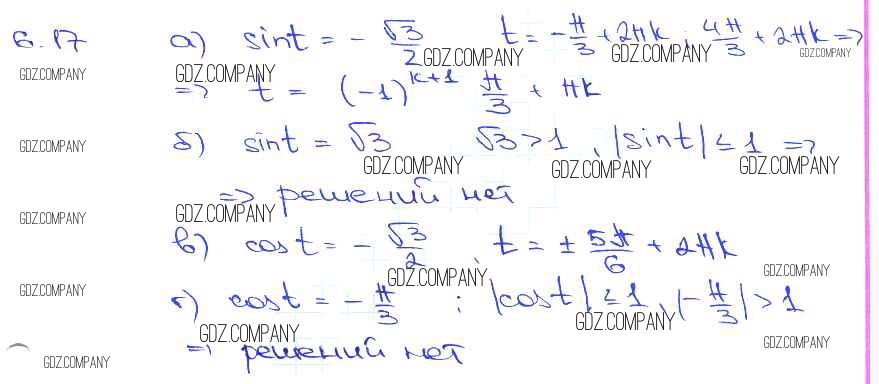 6.17 а) sin t = - √3/2 t = -π/3 + 2πk ; 4π/3 + 2πk =>
GDZ.COMPANY GDZ.COMPANY GDZ.COMPANY GDZ.COMPANY GDZ.COMPANY
=> t = (-1)^(k+1) π/3 + πk
б) sin t = √3 √3 > 1 , |sin t| ≤ 1 =>
GDZ.COMPANY GDZ.COMPANY GDZ.COMPANY GDZ.COMPANY
=> решений нет
GDZ.COMPANY GDZ.COMPANY
в) cos t = - √3/2 , t = ± 5π/6 + 2πk
GDZ.COMPANY GDZ.COMPANY
г) cos t = - π/3 ; |cos t| ≤ 1 , |-π/3| > 1
GDZ.COMPANY GDZ.COMPANY GDZ.COMPANY GDZ.COMPANY
=> решений нет
GDZ.COMPANY